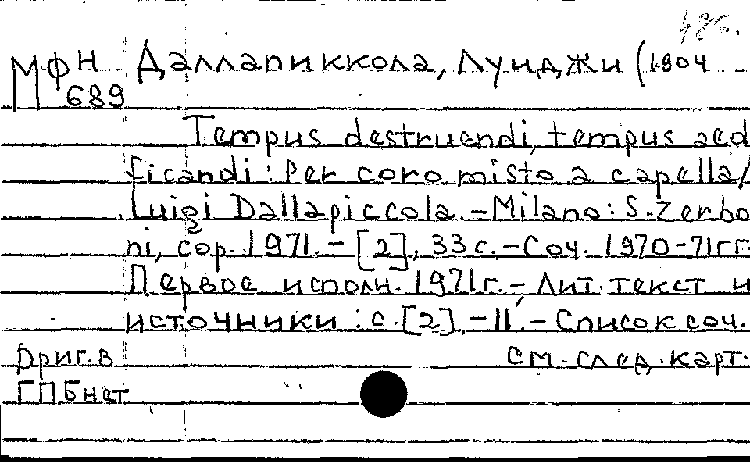 МФН Даллапиккола, Луиджи (1904
689
Tempus destruendi, tempus aed
ficandi : Per coro misto a capella /
Luigi Dallapiccola. - Milano : S. Zerbo
ni, cop. 1971. - [2], 33 с. - Соч. 1970-71гг.
Первое исполн. 1971г. - Лит. текст и
источники : с. [2], -II. - Список соч.
Ориг. в см. след. карт.
ГПБ нет